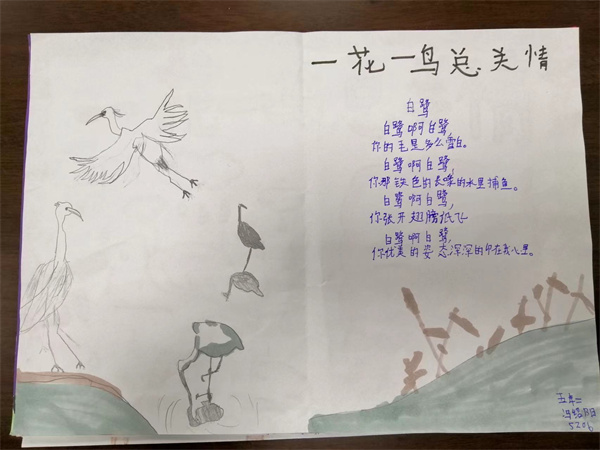 一花一鸟总关情
白鹭
白鹭啊白鹭
你的毛是多么雪白。
白鹭啊白鹭,
你那铁色的长喙的水里捕鱼。
白鹭啊白鹭,
你张开翅膀低飞
白鹭啊白鹭,
你优美的姿态深深的印在我心里。
五年二
5206